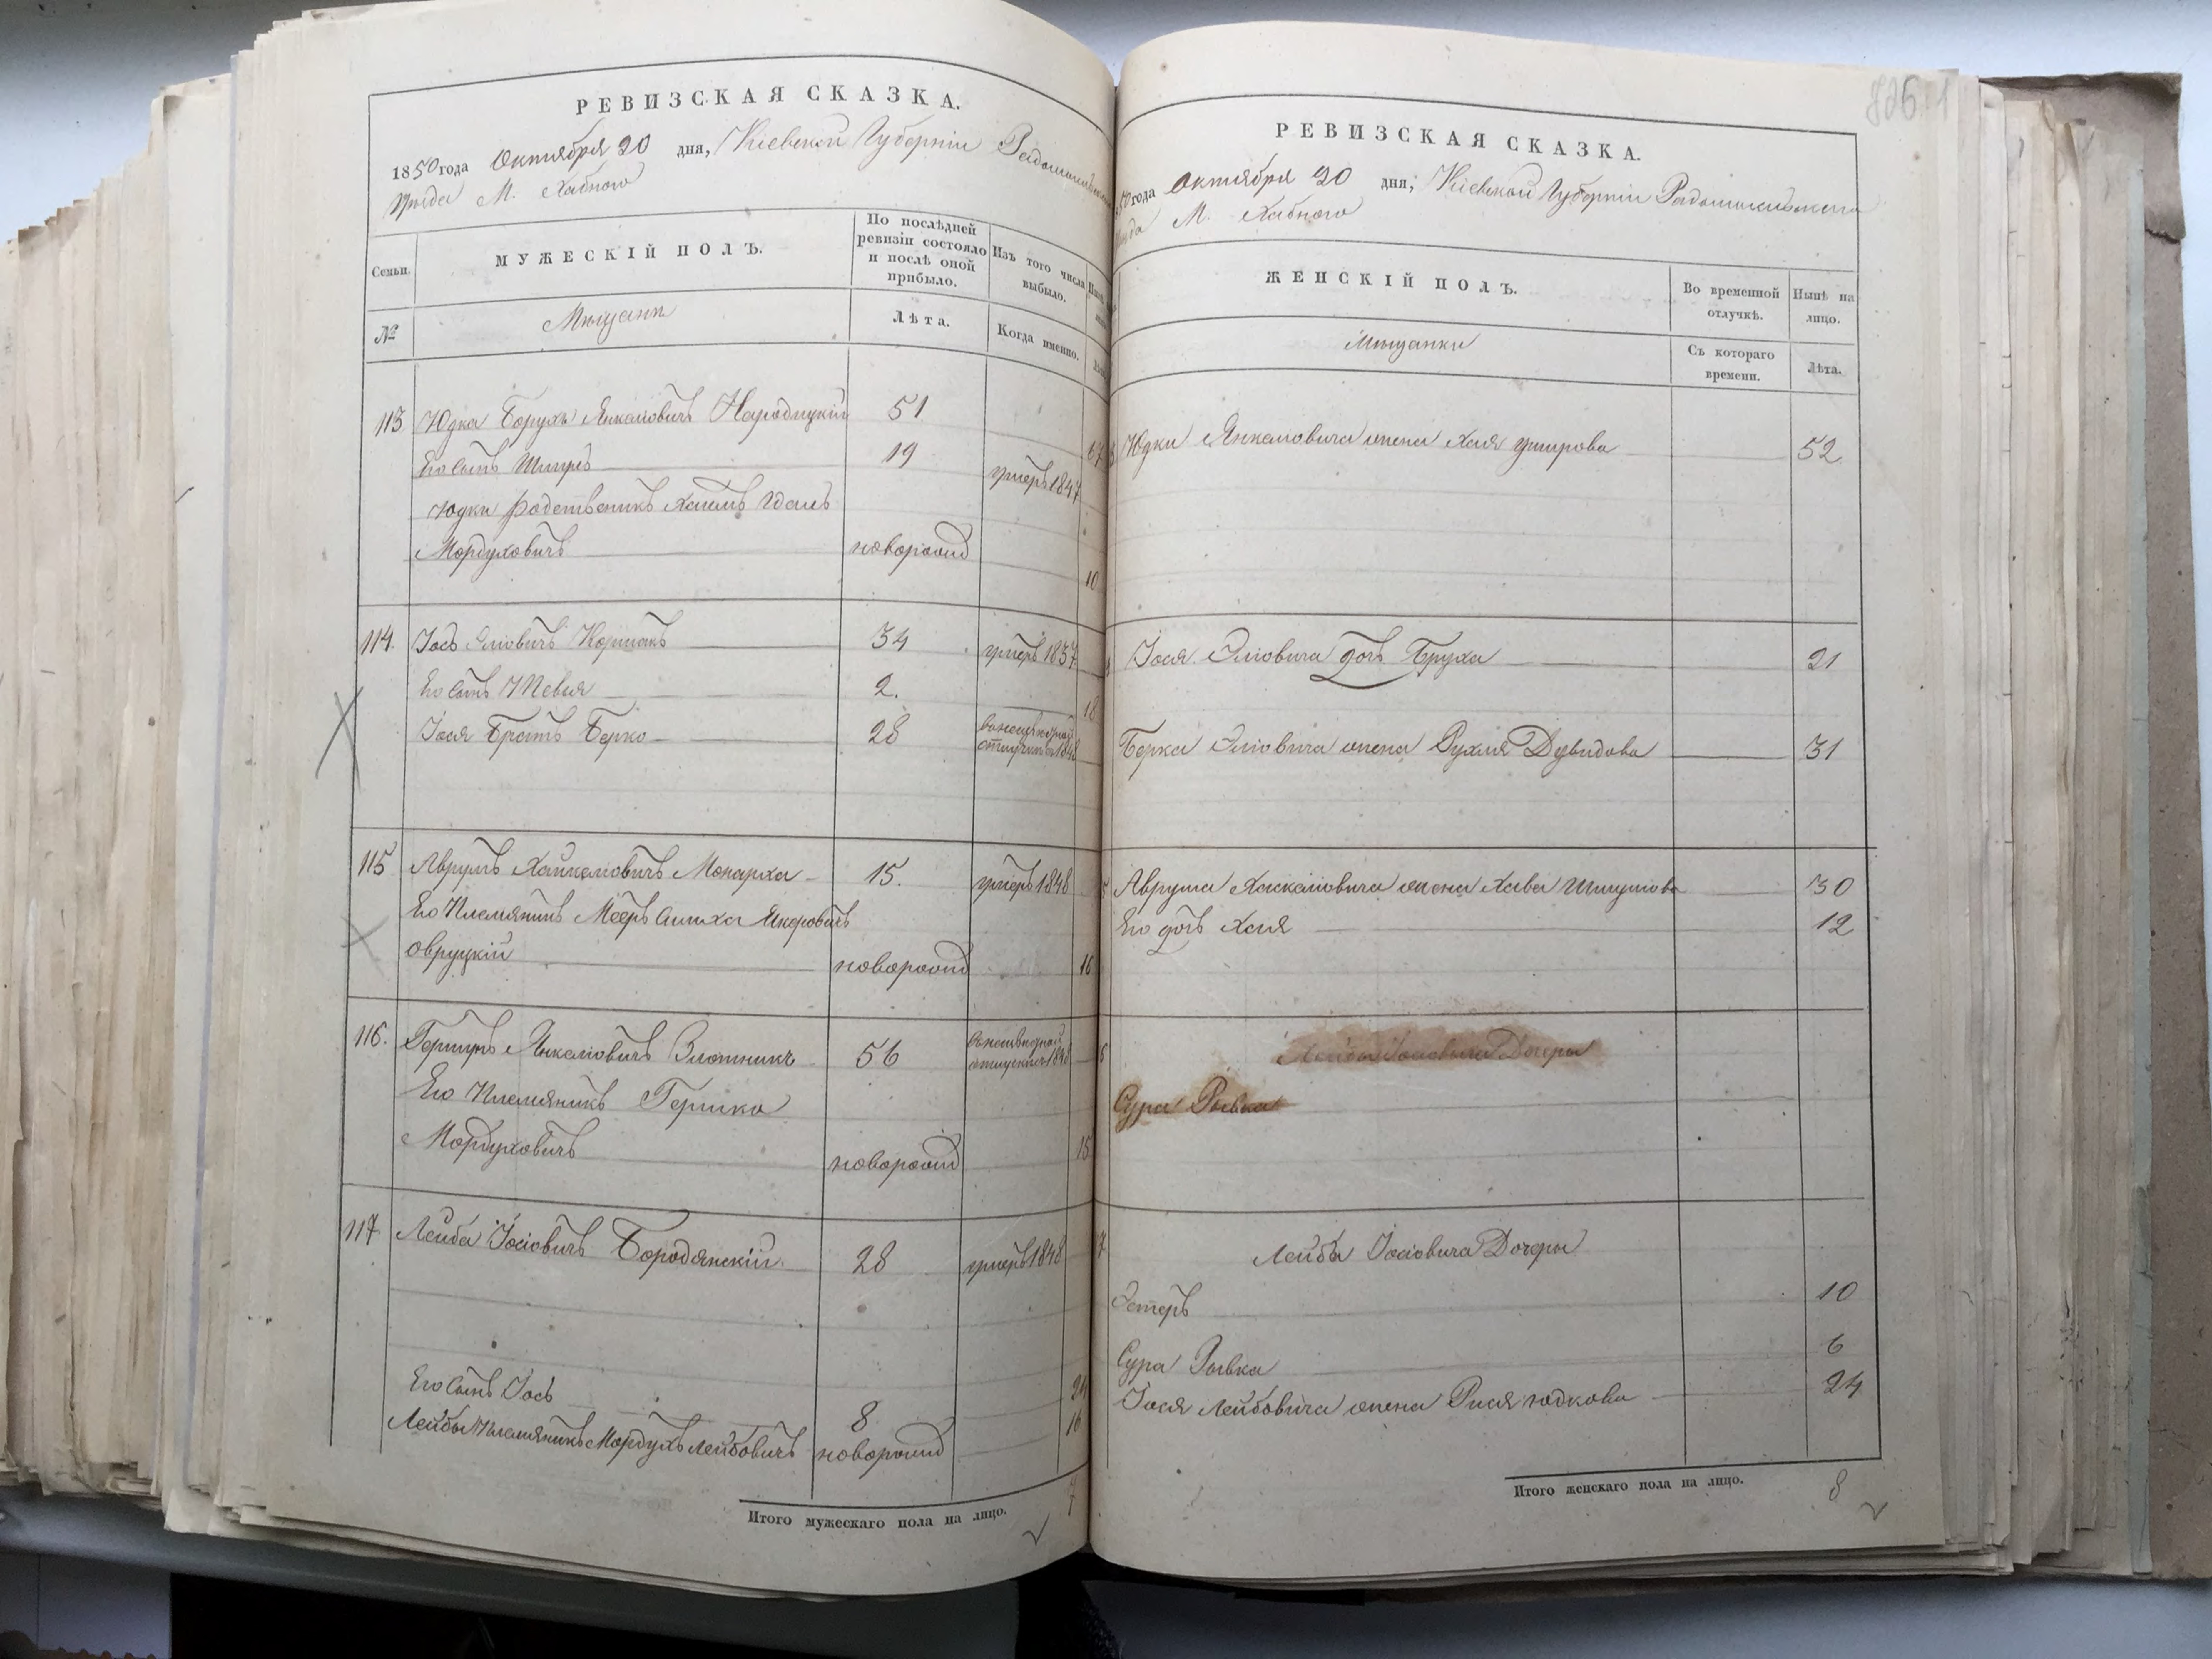 РЕВИЗСКАЯ СКАЗКА.
1850 года Октября 20 дня, Кіевской Губерніи Радомысльскаго
Уѣзда М. Хабного
Семьи.
МУЖЕСКІЙ ПОЛЪ.
По послѣдней ревизіи состояло и послѣ оной прибыло.
Изъ того числа выбыло.
№
Мѣщане
Лѣта.
Когда именно.
113 Юдка Борухъ Янкелiовичъ Народицкій 51
67
Его сынъ Шмуль 19 умеръ 1847
Юдки родственикъ Хаимъ Удель
Мордуховичъ новорожд
10
114. Іось Эліовичъ Коршакъ 34 умеръ 1837
Его сынъ Невия 2.
18
Іося братъ Берко 28
115 Аврумъ Хаикеліовичъ Монарха 15. умеръ 1848
Его Племяникъ Мееръ Симха Янкеровичъ
Овруцкій новорожд 16
116. Гершко Янкеліовичъ Злотникъ 56
Его Племяникъ Гершко
Мордуховичъ новорожд 15
117 Лейба Іосіовичъ Бородянскій 28 умеръ 1848
Его сынъ Іось 8 24
Лейбы Племяникъ Мордухъ Лейбовичъ новорожд 16
Итого мужескаго пола на лицо. 7
РЕВИЗСКАЯ СКАЗКА.
1850 года Октября 20 дня, Кіевской Губерніи Радомысльскаго
Уѣзда М. Хабного
ЖЕНСКІЙ ПОЛЪ.
Во временной отлучкѣ.
Нынѣ на лицо.
Мѣщанки
Съ котораго времени.
Лѣта.
Юдки Янкеліовича жена Хая 52
Іося Эліовича дочь Бруха 21
Берка Эліовича жена Рухля Дувидова 31
Аврума Хаскеліовича жена Хава Шмулiова 30
Его дочь Хая 12
Лейбы Іосіовича Дочери
Сура Рывка
Лейбы Іосіовича Дочери
Эстеръ 10
Сура Рывка 6
Іося Лейбовича жена Рися Юдкова 24
Итого женскаго пола на лицо. 8